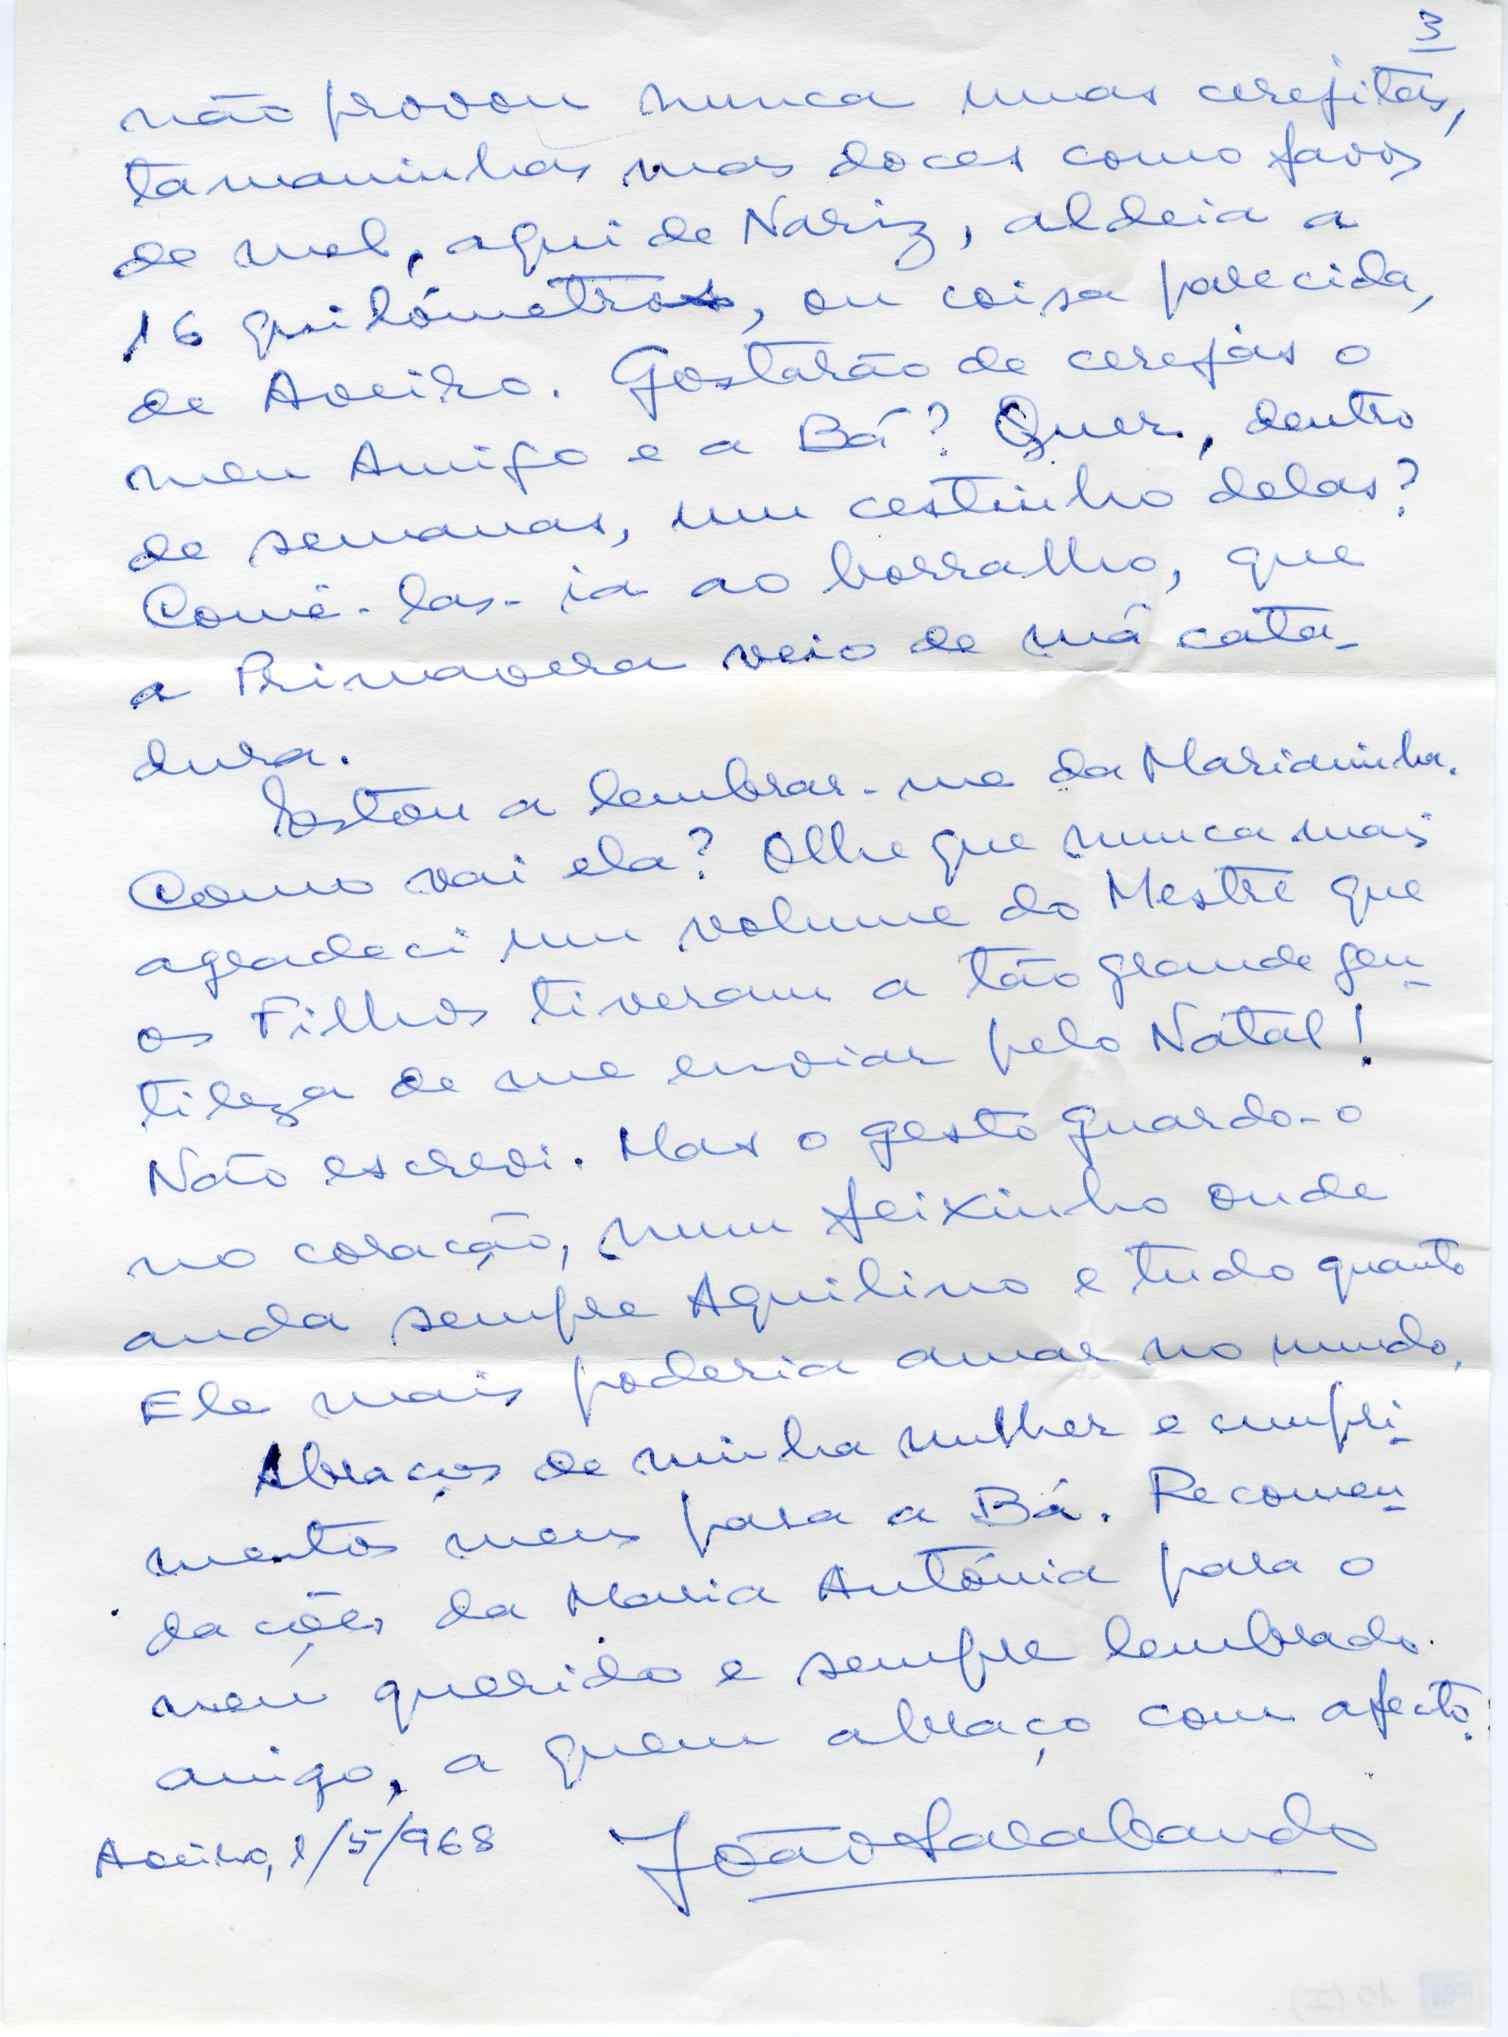 3
não provou nunca umas cerejitas,
tamaninhas mas doces como favos
de mel, aqui de Nariz, aldeia a
16 quilómetros, ou coisa parecida,
de Aveiro. Gostarão de cerejas o
meu Amigo e a Bá? Quer, dentro
de semanas, um cestinho delas?
Comê-las-ia ao borralho, que
a Primavera veio de má cata-
dura.
Estou a lembrar-me da Marianinha.
Como vai ela? Olhe que nunca mais
agradeci um volume do Mestre que
os Filhos tiveram a tão grande gen-
tileza de me enviar pelo Natal!
Não escrevi. Mas o gesto guardo-o
no coração, num feixinho onde
anda sempre Aquilino e tudo quanto
Ele mais poderia amar no mundo.
Abraços de minha mulher e cumpri-
mentos meus para a Bá. Recomen-
dações da Maria Antónia para o
meu querido e sempre lembrado
amigo, a quem abraço com afecto.
João Sarabando
Aveiro, 1/5/968